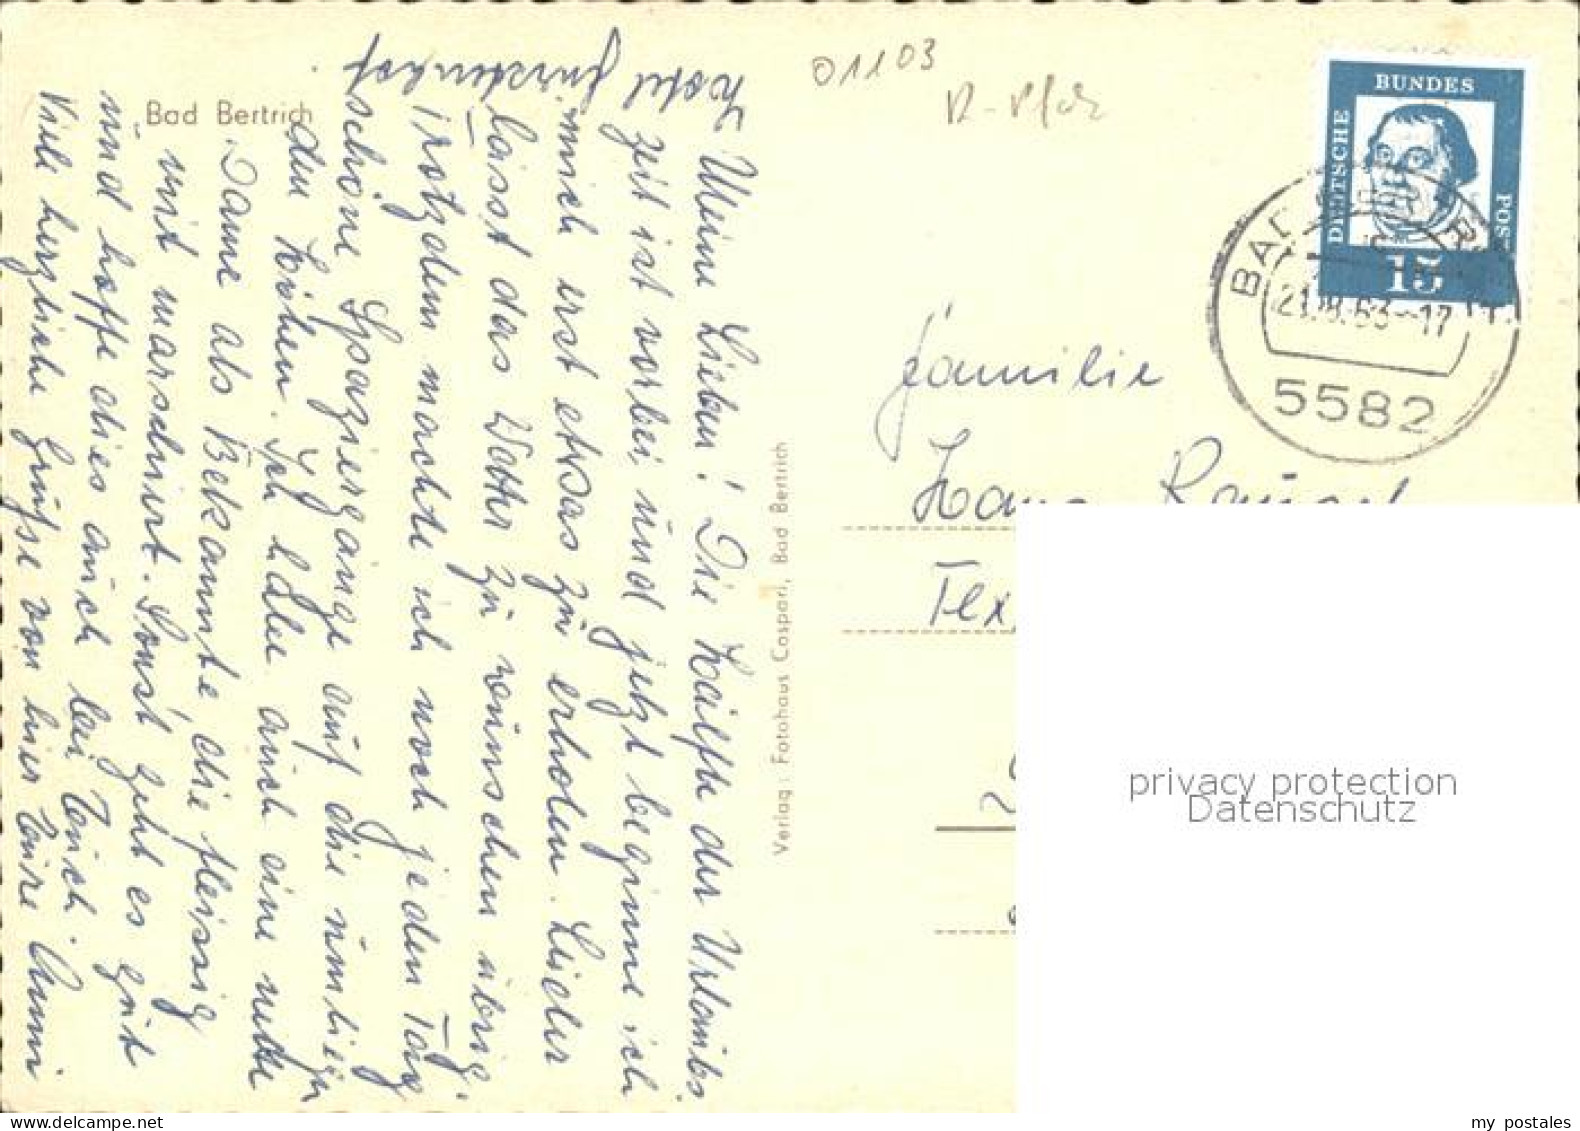 Bad Bertrich
Hotel Fürstenhof
Meine Lieben! Die Hälfte der Urlaubs
zeit ist vorbei und jetzt beginne ich
mich erst etwas zu erholen. Leider
lässt das Wetter zu wünschen übrig.
Trotzdem machte ich noch jeden Tag
schöne Spaziergänge auf die umliegen
den Höhen. Ich habe auch eine nette
Dame als Bekannte, die fleissig
mit marschiert. Sonst geht es gut
und hoffe dies auch bei Euch.
Viele herzliche Grüße von hier Eure Anni
Verlag: Fotohaus Caspari, Bad Bertrich
01103
R-Pfalz
DEUTSCHE
BUNDES
POST
15
BAD BERTRICH
21.8.63-17
5582
Familie
Hans
Tex
privacy protection
Datenschutz
my postales